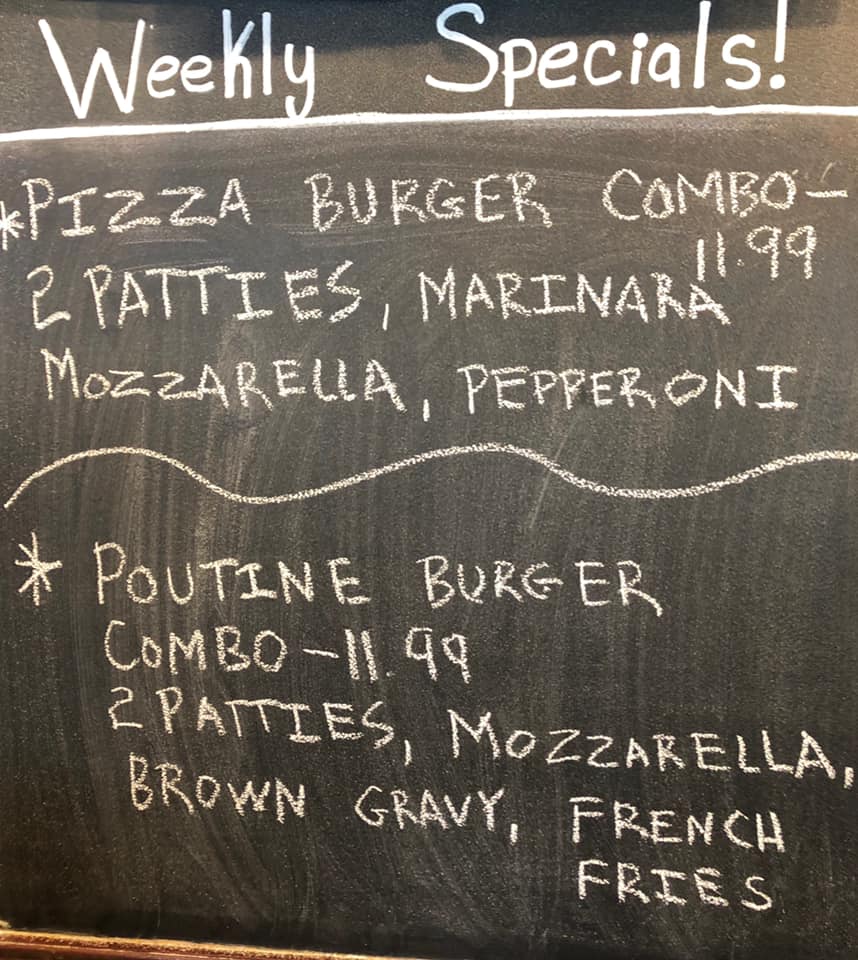 Weekly Specials!
*PIZZA BURGER COMBO-
11.99
2 PATTIES, MARINARA
MOZZARELLA, PEPPERONI
* POUTINE BURGER
COMBO-11.99
2 PATTIES, MOZZARELLA,
BROWN GRAVY, FRENCH
FRIES